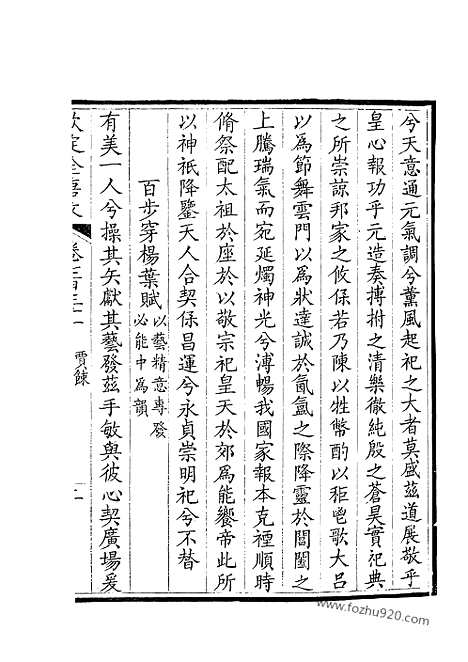 兮天意通元氣調兮薰風起祀之大者莫盛茲道展敬乎
皇心報功乎元造奏搏拊之清樂徹純殷之蒼昊實祀典
之所崇諒邦家之攸保若乃陳以牲幣酌以秬鬯歌大呂
以為節舞雲門以為狀達誠於氤氲之際降靈於閶闔之
上騰瑞氣而宛延燭神光兮溥暢我國家報本克禋順時
脩祭配太祖於座於以敬宗祀皇天於郊為能饗帝此所
以神祇降鑒天人合契保昌運兮永貞崇明祀兮不替
百步穿楊葉賦以藝精意專發
必能中為韻
有美一人兮操其矢獻其藝發茲手敏與彼心契廣場爰
欽定全唐文
賈餗
www.fozhu920.com